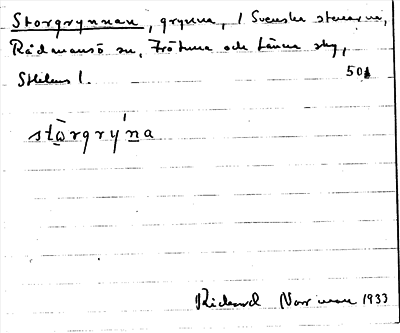 Storgrynnan, grynna, i Svenska stenarna,
Rådmansö sn, Frötuna och Länna skg,
Sthlms l. 50
stòrgrýna
Rickard Norrman 1933